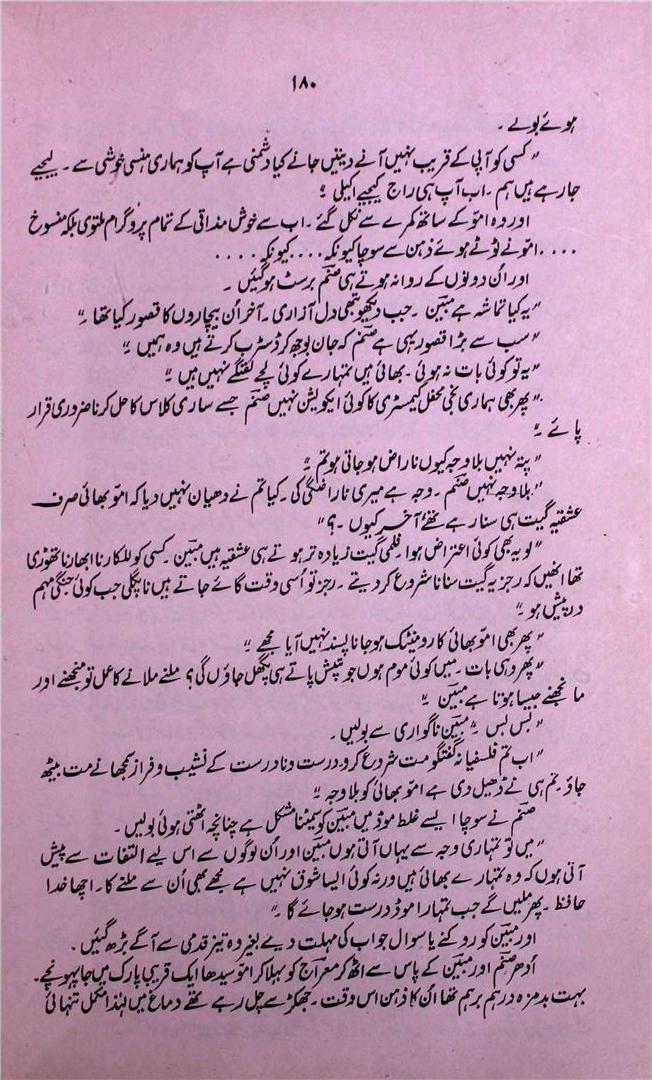 ۱۸۰
ہوئے بولے ۔
"کسی کو آپی کے قریب نہیں آنے دیتیں جانے کیا دشمنی ہے آپ کو ہماری ہنسی خوشی سے ۔ لیجیے
جارہے ہیں ہم ۔ اب آپ ہی راج کیجیے اکیلی ؛"
اور وہ امّو کے ساتھ کمرے سے نکل گئے ۔ اب سے خوش مذاقی کے تمام پروگرام ملتوی بلکہ منسوخ
.... امّو نے ٹوٹے ہوئے ذہن سے سوچا کیونکہ .... کیونکہ ....
اور اُن دونوں کے روانہ ہوتے ہی صنم برسٹ ہوگئیں ۔
"یہ کیا تماشہ ہے مبین ۔ جب دیکھو تبھی دل آزاری ۔ آخر اُن بیچاروں کا قصور کیا تھا ۔"
"سب سے بڑا قصور یہی ہے صنم کہ جان بوجھ کر ڈسٹرب کرتے ہیں وہ ہمیں ۔"
"یہ تو کوئی بات نہ ہوئی ۔ بھائی ہیں تمہارے کوئی لچے لفنگے نہیں ہیں ۔"
"پھر بھی ہماری نجی محفل کیمسٹری کا کوئی ایکویشن نہیں صنم جسے ساری کلاس کا حل کرنا ضروری قرار
پائے ۔"
"پتہ نہیں بلاوجہ کیوں ناراض ہوجاتی ہو تم ۔"
"بلاوجہ نہیں صنم ۔ وجہ ہے میری ناراضگی کی ۔ کیا تم نے دھیان نہیں دیا کہ امّو بھائی صرف
عشقیہ گیت ہی سنارہے تھے آخر کیوں ۔؟"
"لو یہ بھی کوئی اعتراض ہوا ۔ فلمی گیت زیادہ تر ہوتے ہی عشقیہ ہیں مبین ۔ کسی کو للکارنا ابھارنا تھوڑی
تھا انھیں کہ رجزیہ گیت سنانا شروع کردیتے ۔ رجز تو اُسی وقت گائے جاتے ہیں نا پگلی جب کوئی جنگی مہم
درپیش ہو ۔"
"پھر بھی امّو بھائی کا رومینٹک ہوجانا پسند نہیں آیا مجھے ۔"
"پھر وہی بات ۔ میں کوئی موم ہوں جو تپش پاتے ہی پگھل جاؤں گی؟ ملنے ملانے کا عمل تو منجھنے اور
مانجھنے جیسا ہوتا ہے مبین ۔"
"بس بس ۔" مبین ناگواری سے بولیں ۔
"اب تم فلسفیانہ گفتگو مت شروع کرو ۔ درست و نادرست کے نشیب و فراز سمجھانے مت بیٹھ
جاؤ ۔ تم ہی نے ڈھیل دی ہے امّو بھائی کو بلاوجہ ۔"
صنم نے سوچا ایسے غلط موڈ میں مبین کو سمیٹنا مشکل ہے چنانچہ اٹھتی ہوئی بولیں ۔
"میں تو تمہاری وجہ سے یہاں آتی ہوں مبین اور اُن لوگوں سے اس لیے التفات سے پیش
آتی ہوں کہ وہ تمہارے بھائی ہیں ورنہ کوئی ایسا شوق نہیں ہے مجھے بھی اُن سے ملنے کا ۔ اچھا خدا
حافظ ۔ پھر ملیں گے جب تمہارا موڈ درست ہوجائے گا ۔"
اور مبین کو روکنے یا سوال جواب کی مہلت دیے بغیر وہ تیز قدمی سے آگے بڑھ گئیں ۔
اُدھر صنم اور مبین کے پاس سے اٹھ کر معراج کو بہلا کر امّو سیدھا ایک قریبی پارک میں جا پہونچے ۔
بہت بدمزہ درہم برہم تھا اُن کا ذہن اس وقت ۔ جھکڑ سے چل رہے تھے دماغ میں لہٰذا مکمل تنہائی